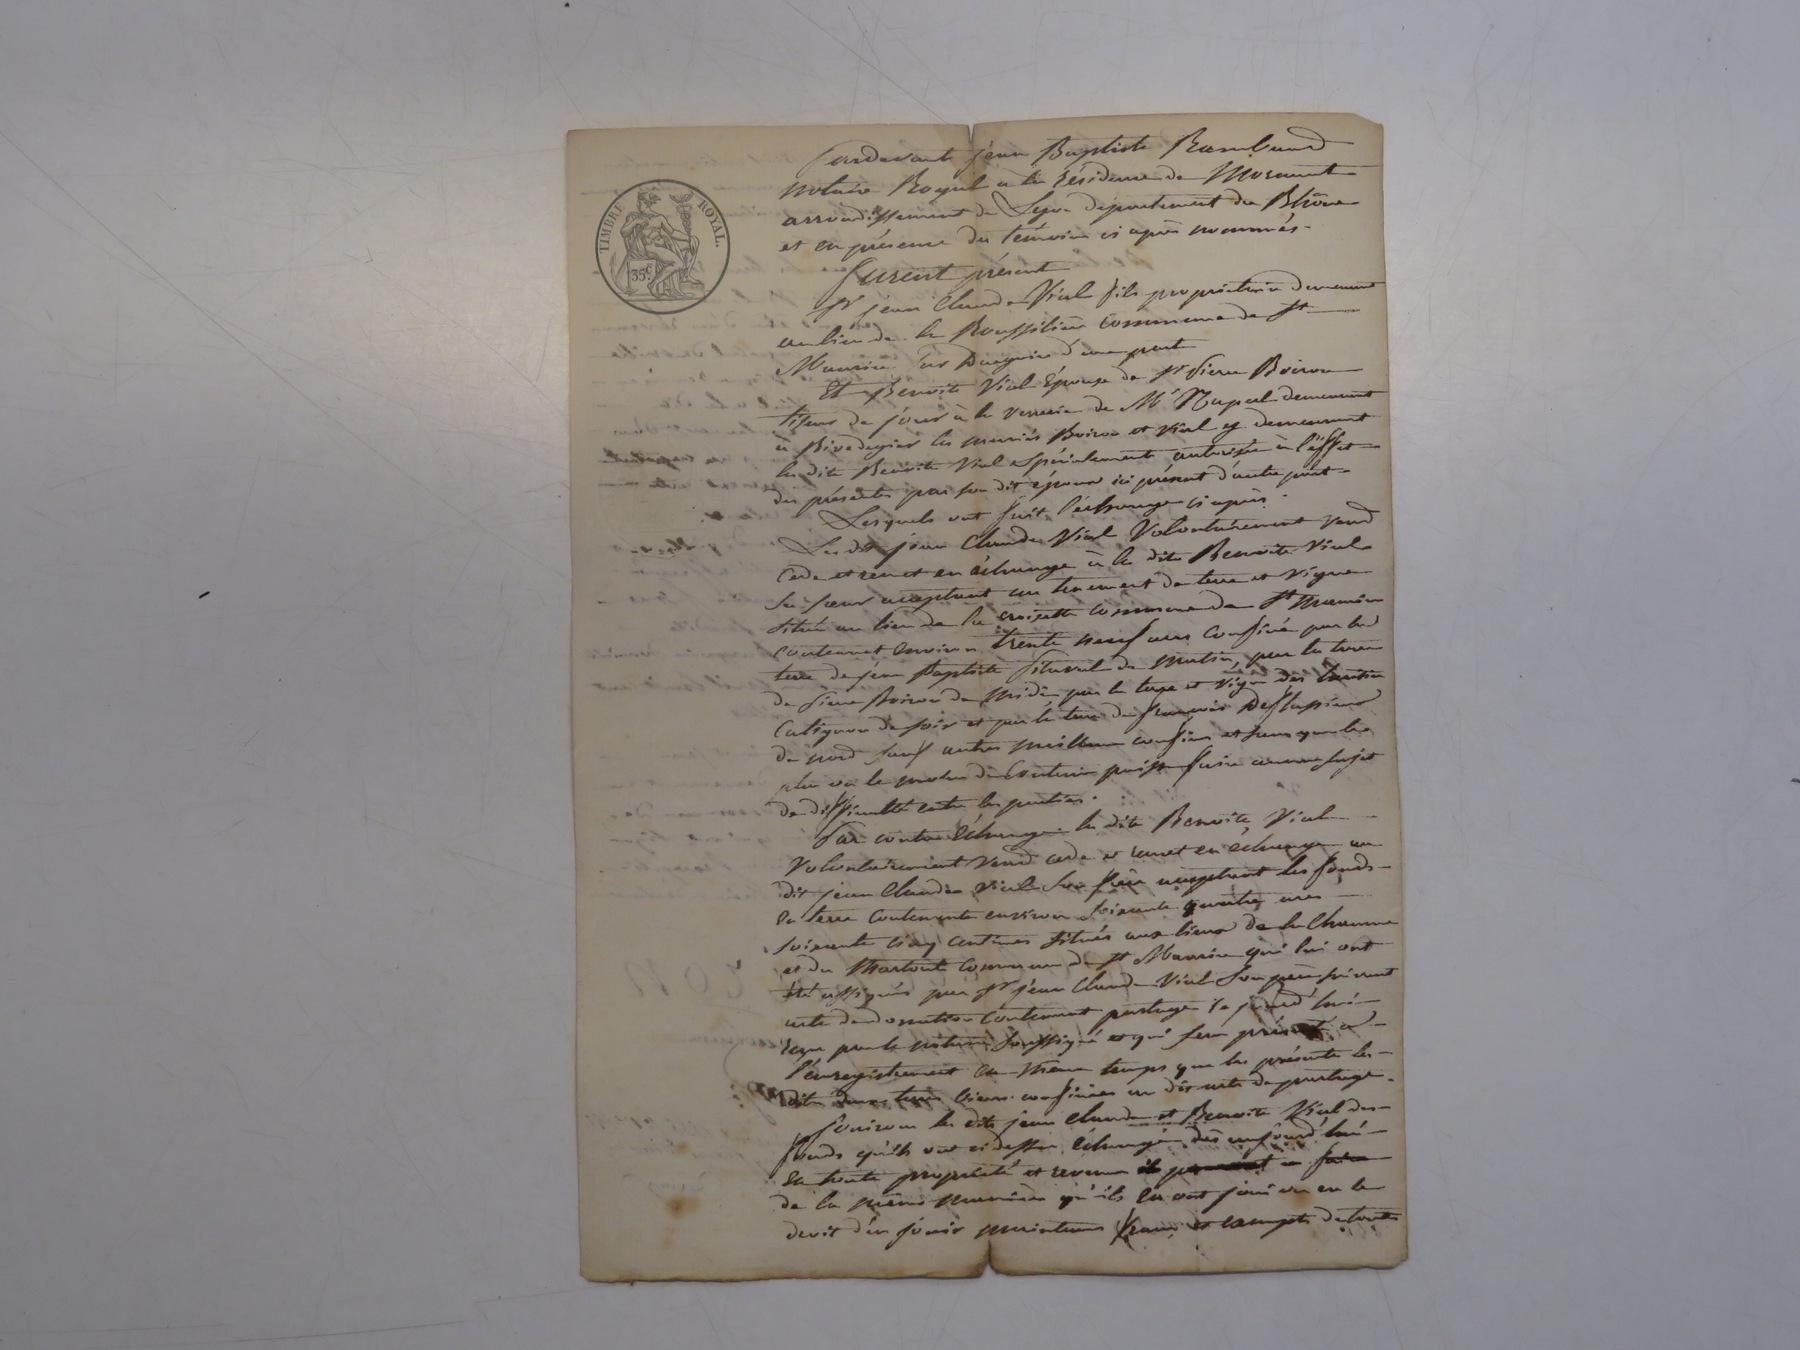 TIMBRE ROYAL.
35c.
Pardevant jean Baptiste Rambaud
notaire Royal à la résidence de Mornant
arrondissement de Lyon département du Rhône
et en présence des témoins ci après nommés.
furent présent
Sr jean Claude Vial fils propriétaire demeurant
au lieu de la Roussilière commune de St
Maurice sur Dargoire d'une part
Et Benoite Vial épouse de Sr Pierre Boiron
tiseur de jour à la verrerie de Mr demeurant
à Rivedegier les mariés Boiron et Vial y demeurant
la dite Benoite Vial spécialement autorisée à l'effet
des présentes par son dit époux ici présent d'autre part
Lesquels ont fait l'échange ci après.
Le dit jean Claude Vial Volontairement vend
cède et remet en échange à la dite Benoite Vial
sa sœur acceptant un tenement de terre et vigne
situé au lieu de la croisette commune de St Maurice
contenant environ trente neuf ares confiné par la
terre de jean Baptiste de matin, par la terre
de Pierre Boiron de midi, par la terre et vigne des héritiers
de soir et par la terre de françois
de nord sauf autres meilleurs confins et sans que le
plus ou le moins de contenu puisse faire aucun sujet
de difficulté entre les parties.
Par contre échange la dite Benoite Vial
Volontairement vend cède et remet en échange au
dit jean Claude Vial son frère acceptant les fonds
en terre contenante environ soixante quatre ares
soixante cinq centiares situés aux lieux de la Chaume
et du commune de St Maurice qui lui ont
été assignés par Sr jean Claude Vial son père suivant
acte de donation contenant partage ce jourd'hui
reçu par le notaire soussigné et qui sera présenté à
l'enregistrement en même temps que les présentes les
dites deux terres bien confinées au dit acte de partage.
Jouiron les dits jean Claude et Benoite Vial des
fonds qu'ils ont ci dessus échangé dès aujourd'hui
en toute propriété et revenu
de la même manière qu'ils en ont joui ou eu le
droit d'en jouir maintenu franc et exempts de toutes